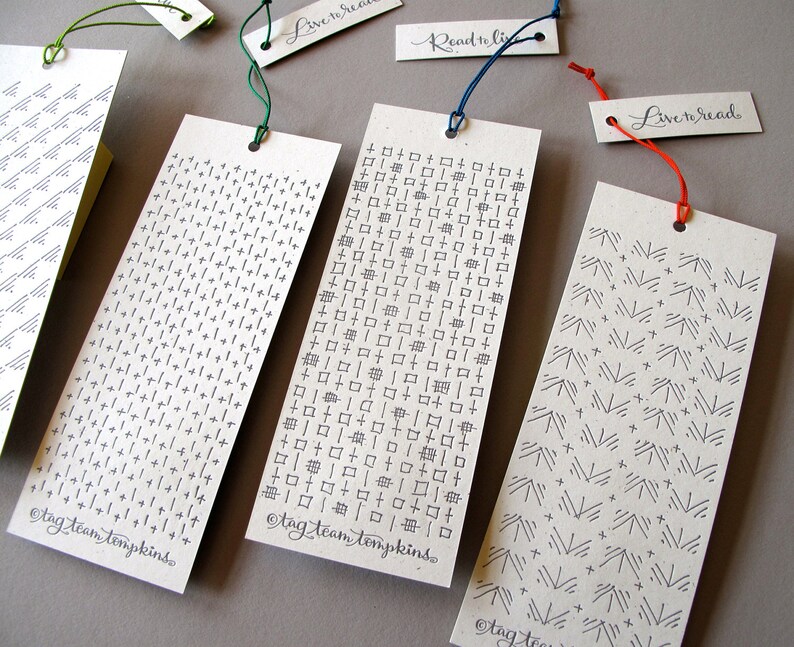 Live to read
Read to live
Live to read
©tag team tompkins
©tag team tompkins
©tag team tompkins